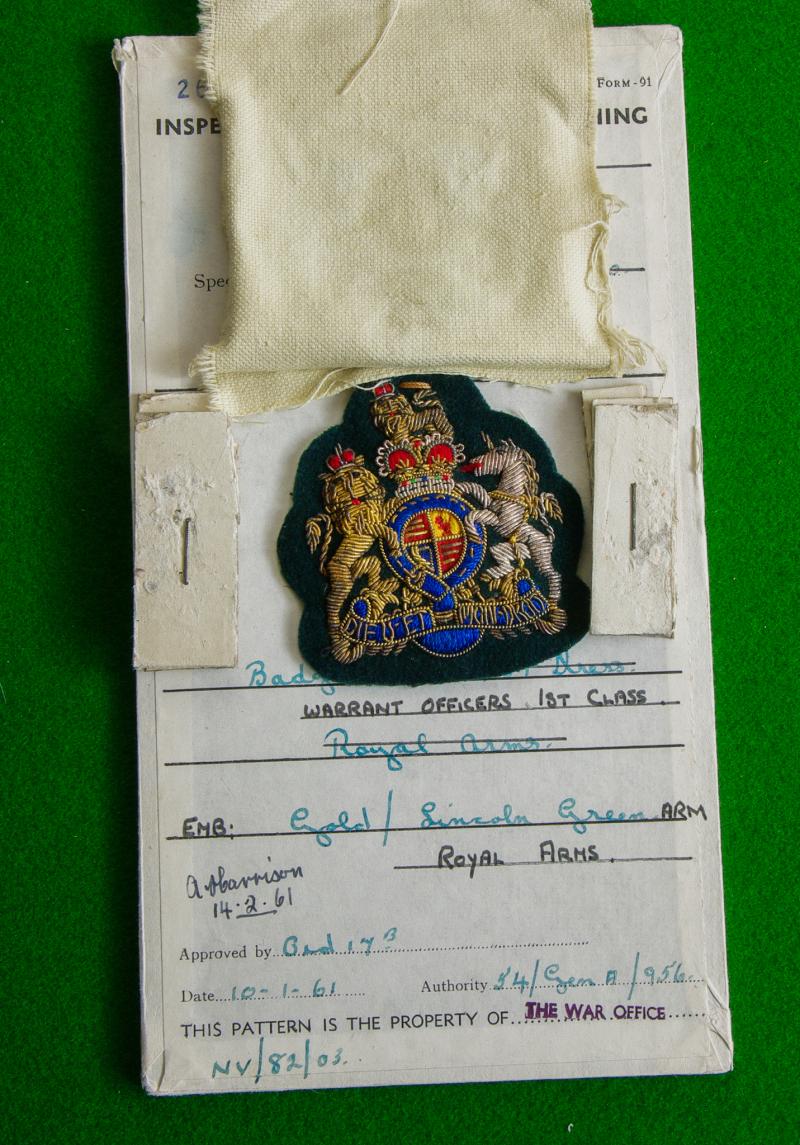 26
FORM-91
INSPE HING
Spe
DIE U ET MON DROID
Bad Dress.
WARRANT OFFICERS 1ST CLASS.
Royal Arms.
EMB: Gold / Lincoln Green ARM
ROYAL ARMS.
A Harrison
14.2.61
Approved by Ord 17B
Date 10-1-61 Authority 54/Gen A/956
THIS PATTERN IS THE PROPERTY OF THE WAR OFFICE
NV/82/03.